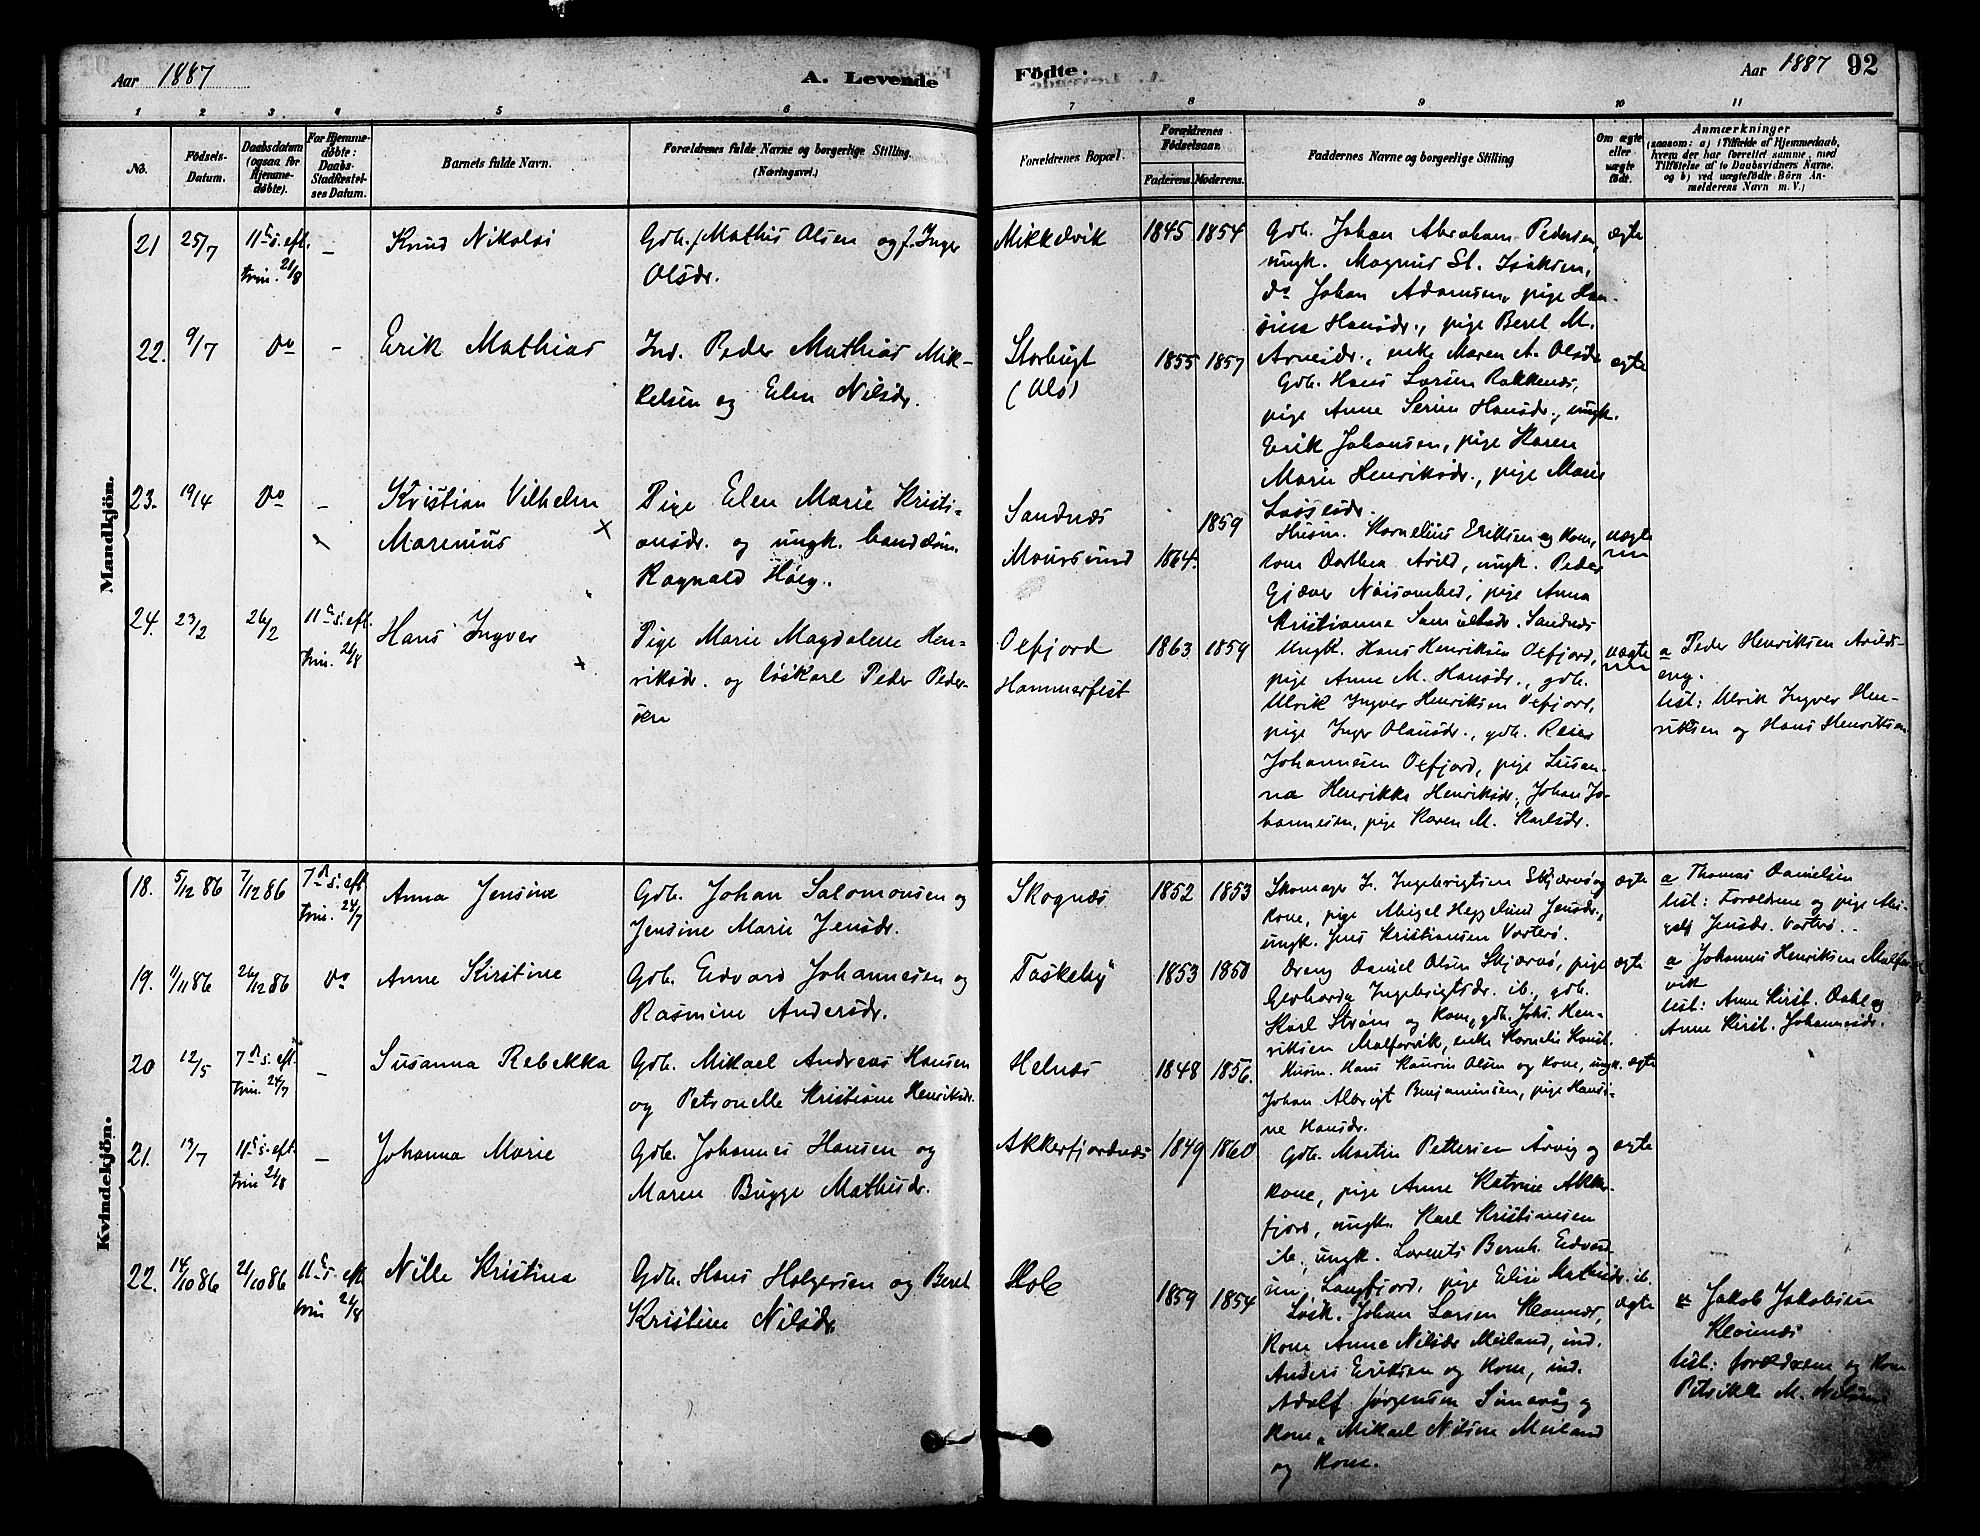 Aar 1887
A. Levende
Födte.
Aar 1887 92
1 2 3 4 5 6 7 8 9 10 11
No.
Födsels-
Datum.
Daabsdatum
(ogsaa for
Hjemme-
døbte).
For Hjemme-
døbte:
Daabs
Stadfæstel-
ses Datum.
Barnets fulde Navn.
Forældrenes fulde Navne og borgerlige Stilling
(Næringsvei.)
Forældrenes Bopæl.
Forældrenes
Fødselsaar.
Faderens. Moderens.
Faddernes Navne og borgerlige Stilling
Om ægte
eller
uægte
født.
Anmærkninger
(saasom: a) i Tilfælde af Hjemmedaab,
hvem der har forrettet samme, med
Tilføielse af to Daabsvidners Navne,
og b) ved uægtefødte Börn An-
melderens Navn m. V.)
Mandkjön.
21 25/7 11te s. eft.
trin. 21/8 –
Knud Nikolai
Gdb. Mathis Olsen og f. Inger
Olsdr.
Mikkelvik 1845 1854
Gdb. Johan Abraham Pedersen,
ungk. Magnus St. Isaksen,
do Johan Adamsen, pige Han-
sine Hansdr., pige Beret M.
Arneidr., enke Maren A. Olsdr.
ægte
22. 9/7 Do –
Erik Mathias
Ind. Peder Mathias Mik-
kelsen og Elen Nilsdr.
Storbugt
1855 1857
Gdb. Hans Larsen Rakkenes,
pige Anne Serine Hansdr., ungk.
Erik Johansen, pige Karen
Marie Henriksdr., pige Marie
ægte
23. 19/4 Do –
Kristian Vilhelm
Marenius x
Pige Elen Marie Kristi-
ansdr. og ungk.
Ragnald Høeg.
Sandnæs
Maursund 1864. 1859
Husm. Kornelius Eriksen og kone,
kone Dorthea Arild, ungk. Peder
Gjæver pige Anna
Kristianna Samuelsdr. Sandnes
uægte
24. 23/2 26/2 11te s. eft.
trin. 21/8
Hans Ingver x
Pige Marie Magdalene Hen-
riksdr. og løskarl Peder Peder-
sen
Oxfjord
Hammerfest
1863 1859
Ungk. Hans Henriksen Oxfjord,
pige Anne M. Hansdr., gdb.
Ulrik Ingver Henriksen Oxfjord,
pige Inger Olausdr., gdb. Reier
Johannesen Oxfjord, pige Susan-
na Henrikke Henriksdr., Johan Jo-
hannesen, pige Karen M. Karlsdr.
uægte
a Peder Henriksen Arilds-
eng.
test: Ulrik Ingver Hen-
riksen og Hans Henriksen
Kvindekjön.
18. 5/12 86 7/12 86 7de s. eft
trin. 24/7
Anna Jensine
Gdb. Johan Salomonsen og
Jensine Marie Jensdr.
Skognæs 1852 1853
Skomager I. Ingebrigtsen Skjærvø og
kone, pige Abigel Heggelund Jensdr.,
ungk. Jens Kristiansen Vorterø.
ægte
a Thomas Danielsen
test: Forældrene og pige Abi-
gel Jensdr. Vorterø.
19. 11/11 86 26/12 86 Do
Anne Kirstine
Gdb. Edvard Johannesen og
Rasmine Andersdr.
Taskeby 1853 1850
Dreng Daniel Olsen Skjærvø, pige
Gerharda Ingebrigtsdr. ib., gdb.
Karl Strøm og kone, gdb. Johs. Hen-
riksen Malfarvik, enke Kornelia
ægte
a Johannes Henriksen Malfar-
vik
test: Anne Kirst. Dahl og
Anne Kirst. Johannesdr.
20 12/5 7de s. eft
trin. 24/7 –
Susanna Rebekka
Gdb. Mikael Andreas Hansen
og Petronelle Kristiane Henriksdr.
Helnæs 1848 1856.
Husm. Hans Olsen og kone, ungk.
Johan Albrigt Benjaminsen, pige Hansi-
ne Hansdr.
ægte
21. 13/7 11te s. eft.
trin 21/8 –
Johanna Marie
Gdb. Johannes Hansen og
Maren Bugge Mathisdr.
Akkerfjordnæs 1849 1860
Gdb. Martin Pettersen Årvig og
kone, pige Anne Katrine Akker-
fjord, ungk. Karl Kristiansen
ib., ungk. Lorents Bernh. Edvard-
sen, Langfjord, pige Elise Mathisdr. ib.
ægte
22. 14/10 86 21/10 86 11te s. eft
trin 21/8
Nille Kristina
Gdb. Hans Holgersen og Beret
Kristine Nilsdr.
1859 1854
Løsk. Johan Larsen
kone Anne Nilsdr Meiland, ind.
Anders Eriksen og kone, ind.
Adolf Jørgensen og
kone, Mikael Nilsen Meiland
og kone.
ægte
a Jakob Jakobsen
test: forældrene og kone
M. Nilsen